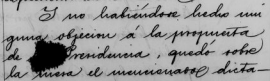 Y no habiéndose hecho nin
guna objecion á la propuesta
de Presidencia, quedó sobre
la mesa el mencionado dicta-